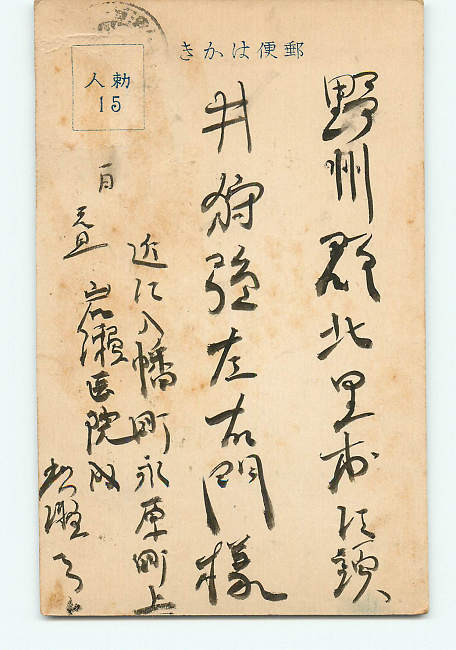 郵便はかき
勅人
15
野州郡北里村江頭
井狩左右門様
一月
元旦
近江八幡町永原町上
岩瀬医院内